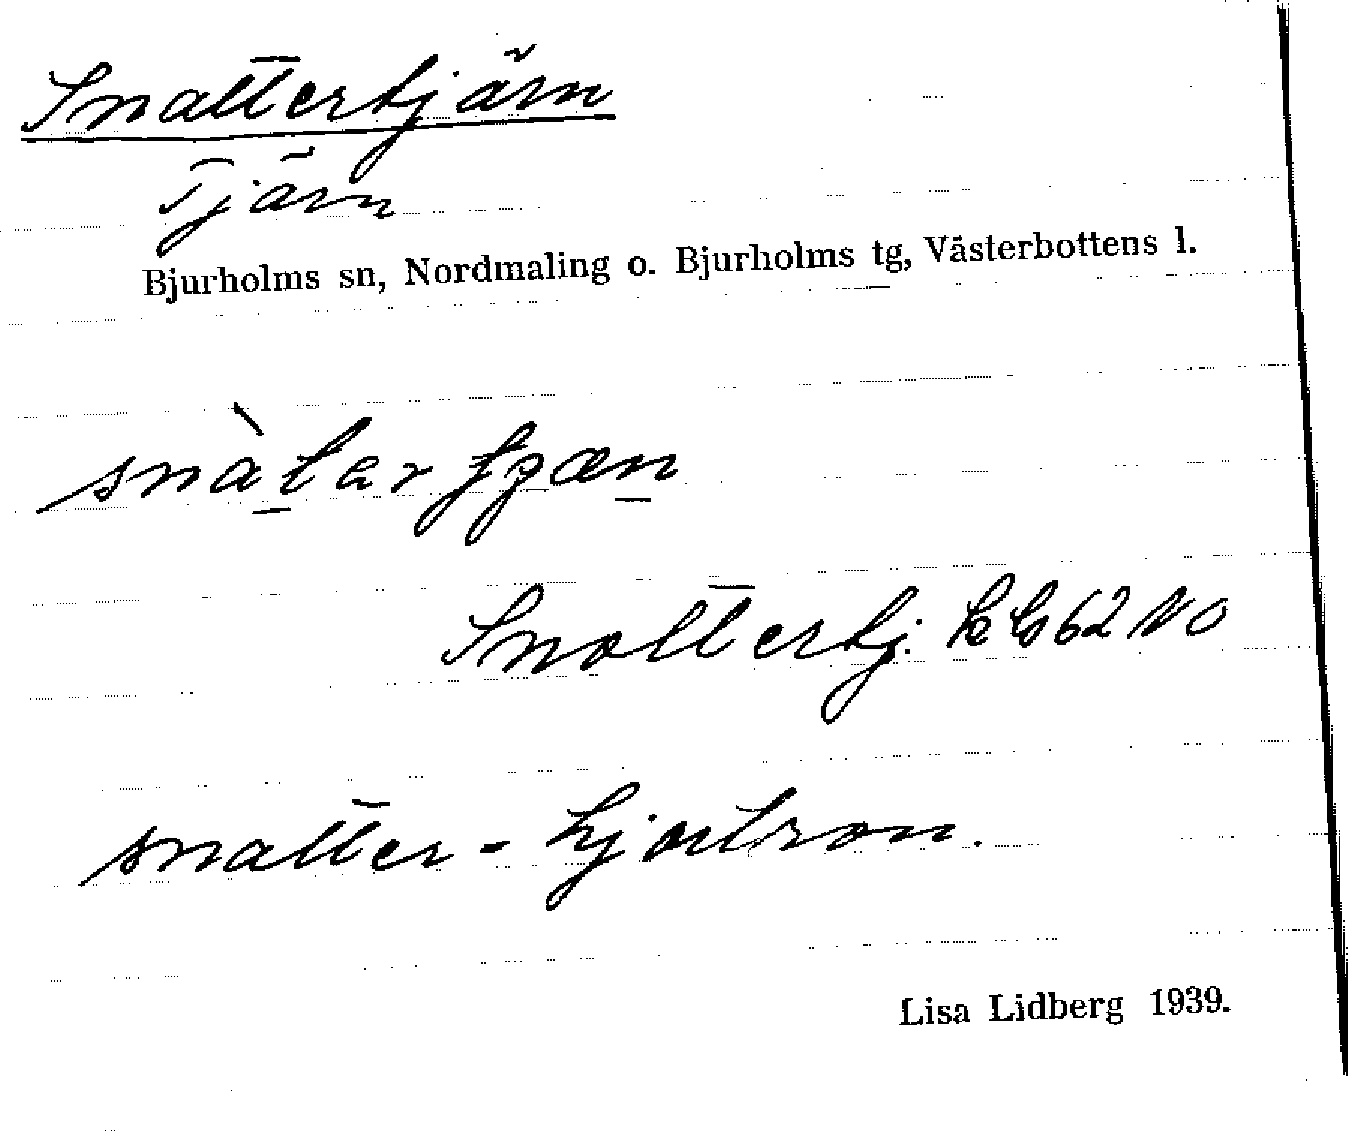 Snattertjärn
Tjärn
Bjurholms sn, Nordmaling o. Bjurholms tg, Västerbottens l.
Snottertj. kb 62 NO
snatter - hjortron.
Lisa Lidberg 1939.